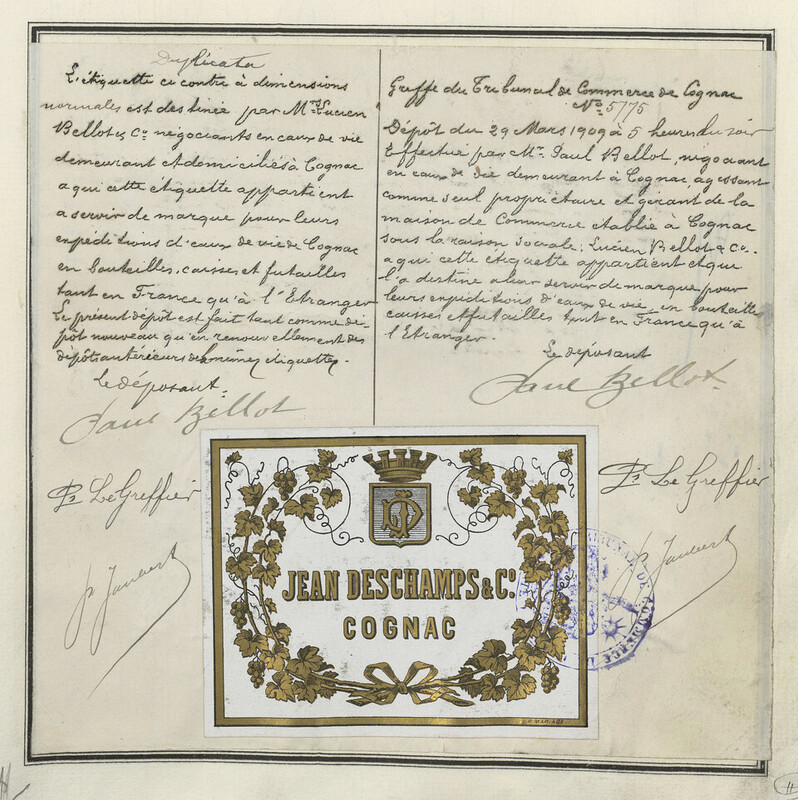 Duplicata
L'étiquette ci contre à dimensions
normales est destinée par Mrs Lucien
Bellot & Co négociants en eaux de vie
demeurant et domiciliés à Cognac
a qui cette étiquette appartient
a servir de marque pour leurs
expéditions d'eaux de vie de Cognac
en bouteilles, caisses et futailles
tant en France qu'à l'Etranger
Le présent dépôt est fait tant comme dé-
pôt nouveau qu'en renouvellement des
dépôts antérieurs des mêmes étiquettes.
Le déposant:
Paul Bellot
Pr Le Greffier
Greffe du Tribunal de Commerce de Cognac
No 5775
Dépôt du 29 Mars 1909 à 5 heures du soir
Effectué par Mr. Paul Bellot, négociant
en eaux de vie demeurant à Cognac, agissant
comme seul propriétaire et gérant de la
maison de Commerce établie à Cognac
sous la raison sociale: Lucien Bellot & Co.
a qui cette étiquette appartient et qui
l'a destine a leur servir de marque pour
leurs expéditions d'eaux de vie, en bouteilles
caisses et futailles tant en France qu'à
l'Etranger.
Le déposant
Paul Bellot
Pr Le Greffier
JD
JEAN DESCHAMPS & Co.
COGNAC
TRIBUNAL DE COMMERCE
11